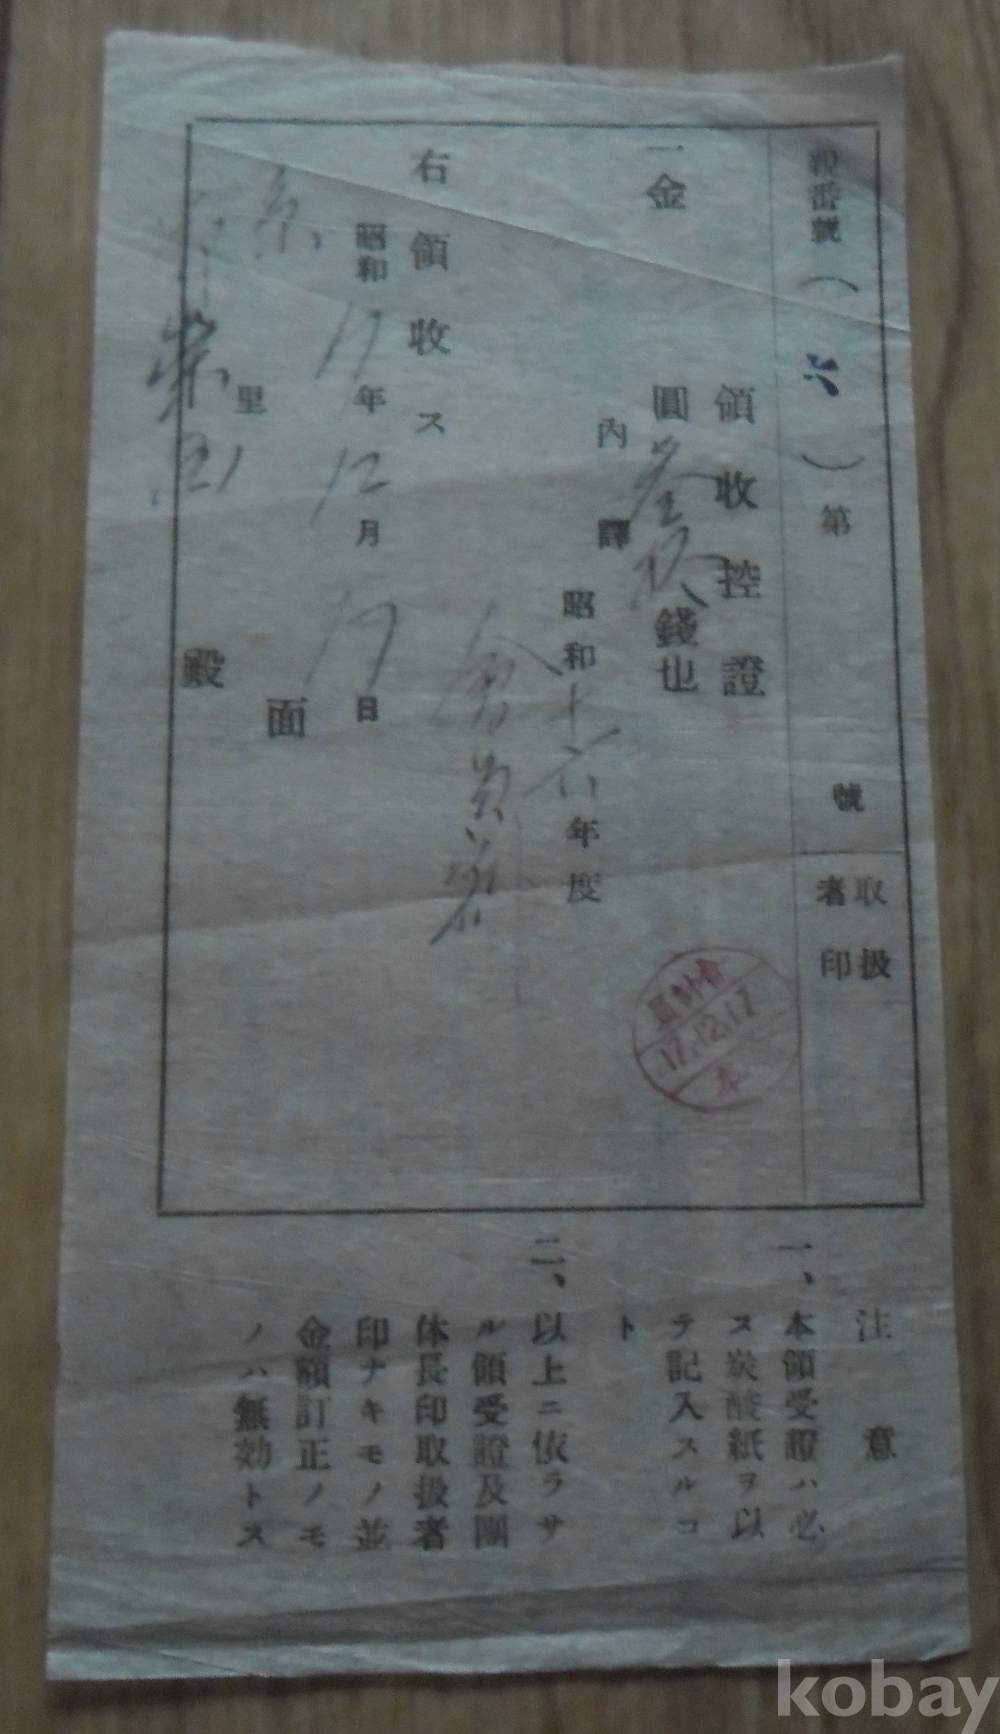 親番號（六）第 號
取扱
者印
領收控證
一金 圓參拾錢也
內譯
昭和十六年度
會費
右領收ス
昭和17年12月17日
里 面
殿
會計員
17.12.17
注意
一、本領受證ハ必
ス炭酸紙ヲ以
テ記入スルコ
ト
二、以上ニ依ラサ
ル領受證及團
体長印取扱者
印ナキモノ並
金額訂正ノモ
ノハ無効トス
kobay